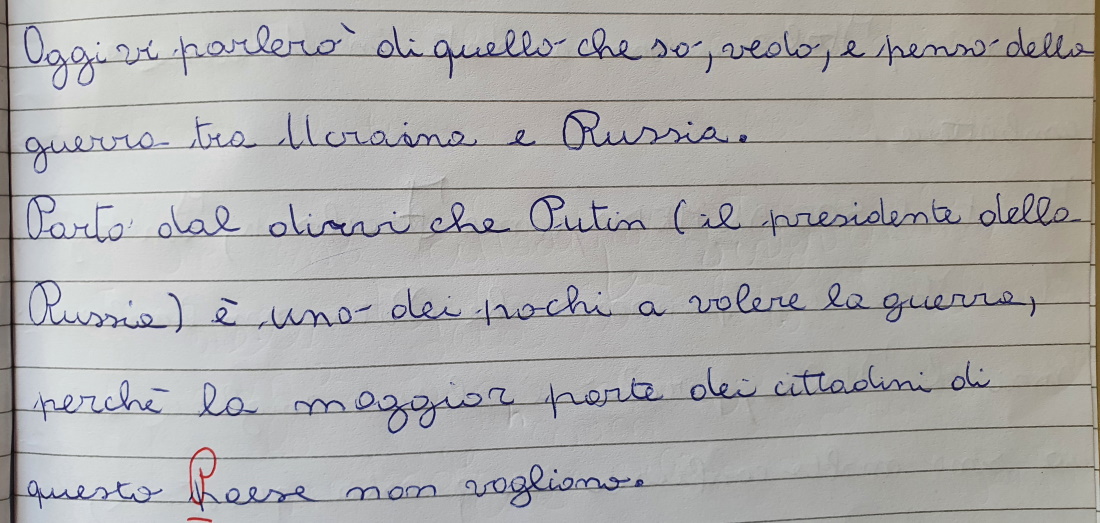 Oggi vi parlerò di quello che so, vedo, e penso della
guerra tra Ucraina e Russia.
Parto dal dirvi che Putin (il presidente della
Russia) è uno dei pochi a volere la guerra,
perchè la maggior parte dei cittadini di
questo Paese non vogliono.